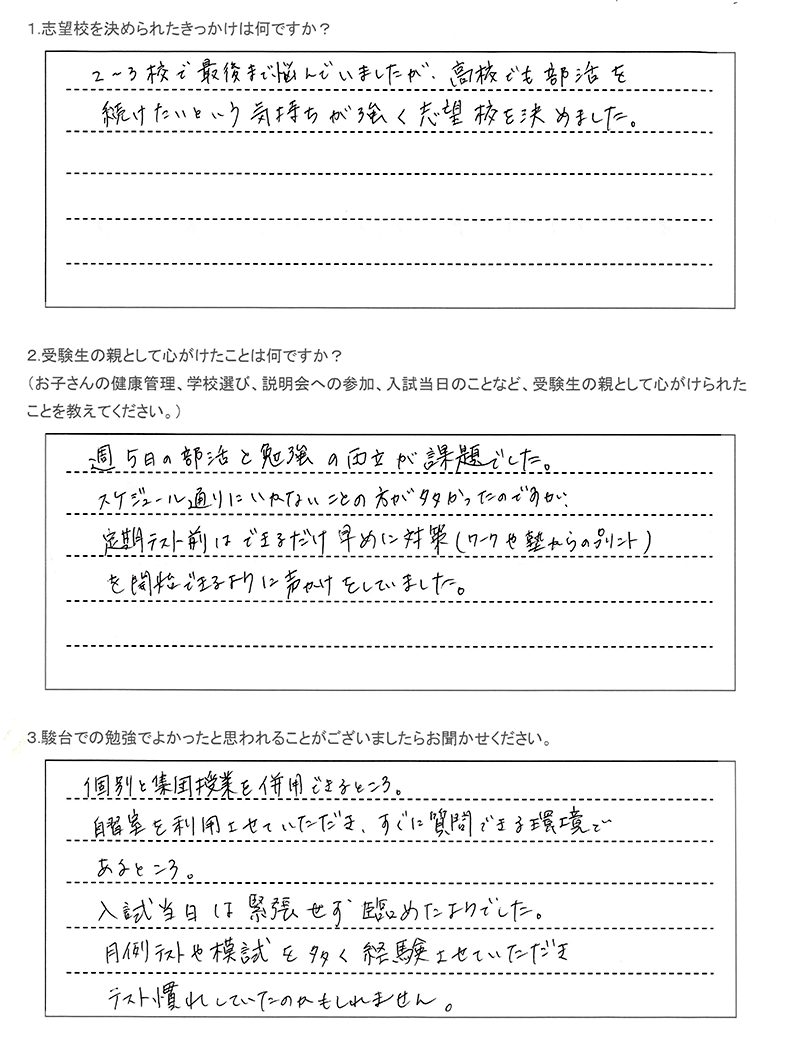 1.志望校を決められたきっかけは何ですか？
2～3校で最後まで悩んでいましたが、高校でも部活を
続けたいという気持ちが強く志望校を決めました。
2.受験生の親として心がけたことは何ですか？
（お子さんの健康管理、学校選び、説明会への参加、入試当日のことなど、受験生の親として心がけられた
ことを教えてください。）
週5日の部活と勉強の両立が課題でした。
スケジュール通りにいかないことの方が多かったのですが、
定期テスト前はできるだけ早めに対策(ワークや塾からのプリント)
を開始できるように声かけをしていました。
3.駿台での勉強でよかったと思われることがございましたらお聞かせください。
個別と集団授業を併用できるところ。
自習室を利用させていただき、すぐに質問できる環境で
あるところ。
入試当日は緊張せず臨めたようでした。
月例テストや模試を多く経験させていただき
テスト慣れしていたのかもしれません。